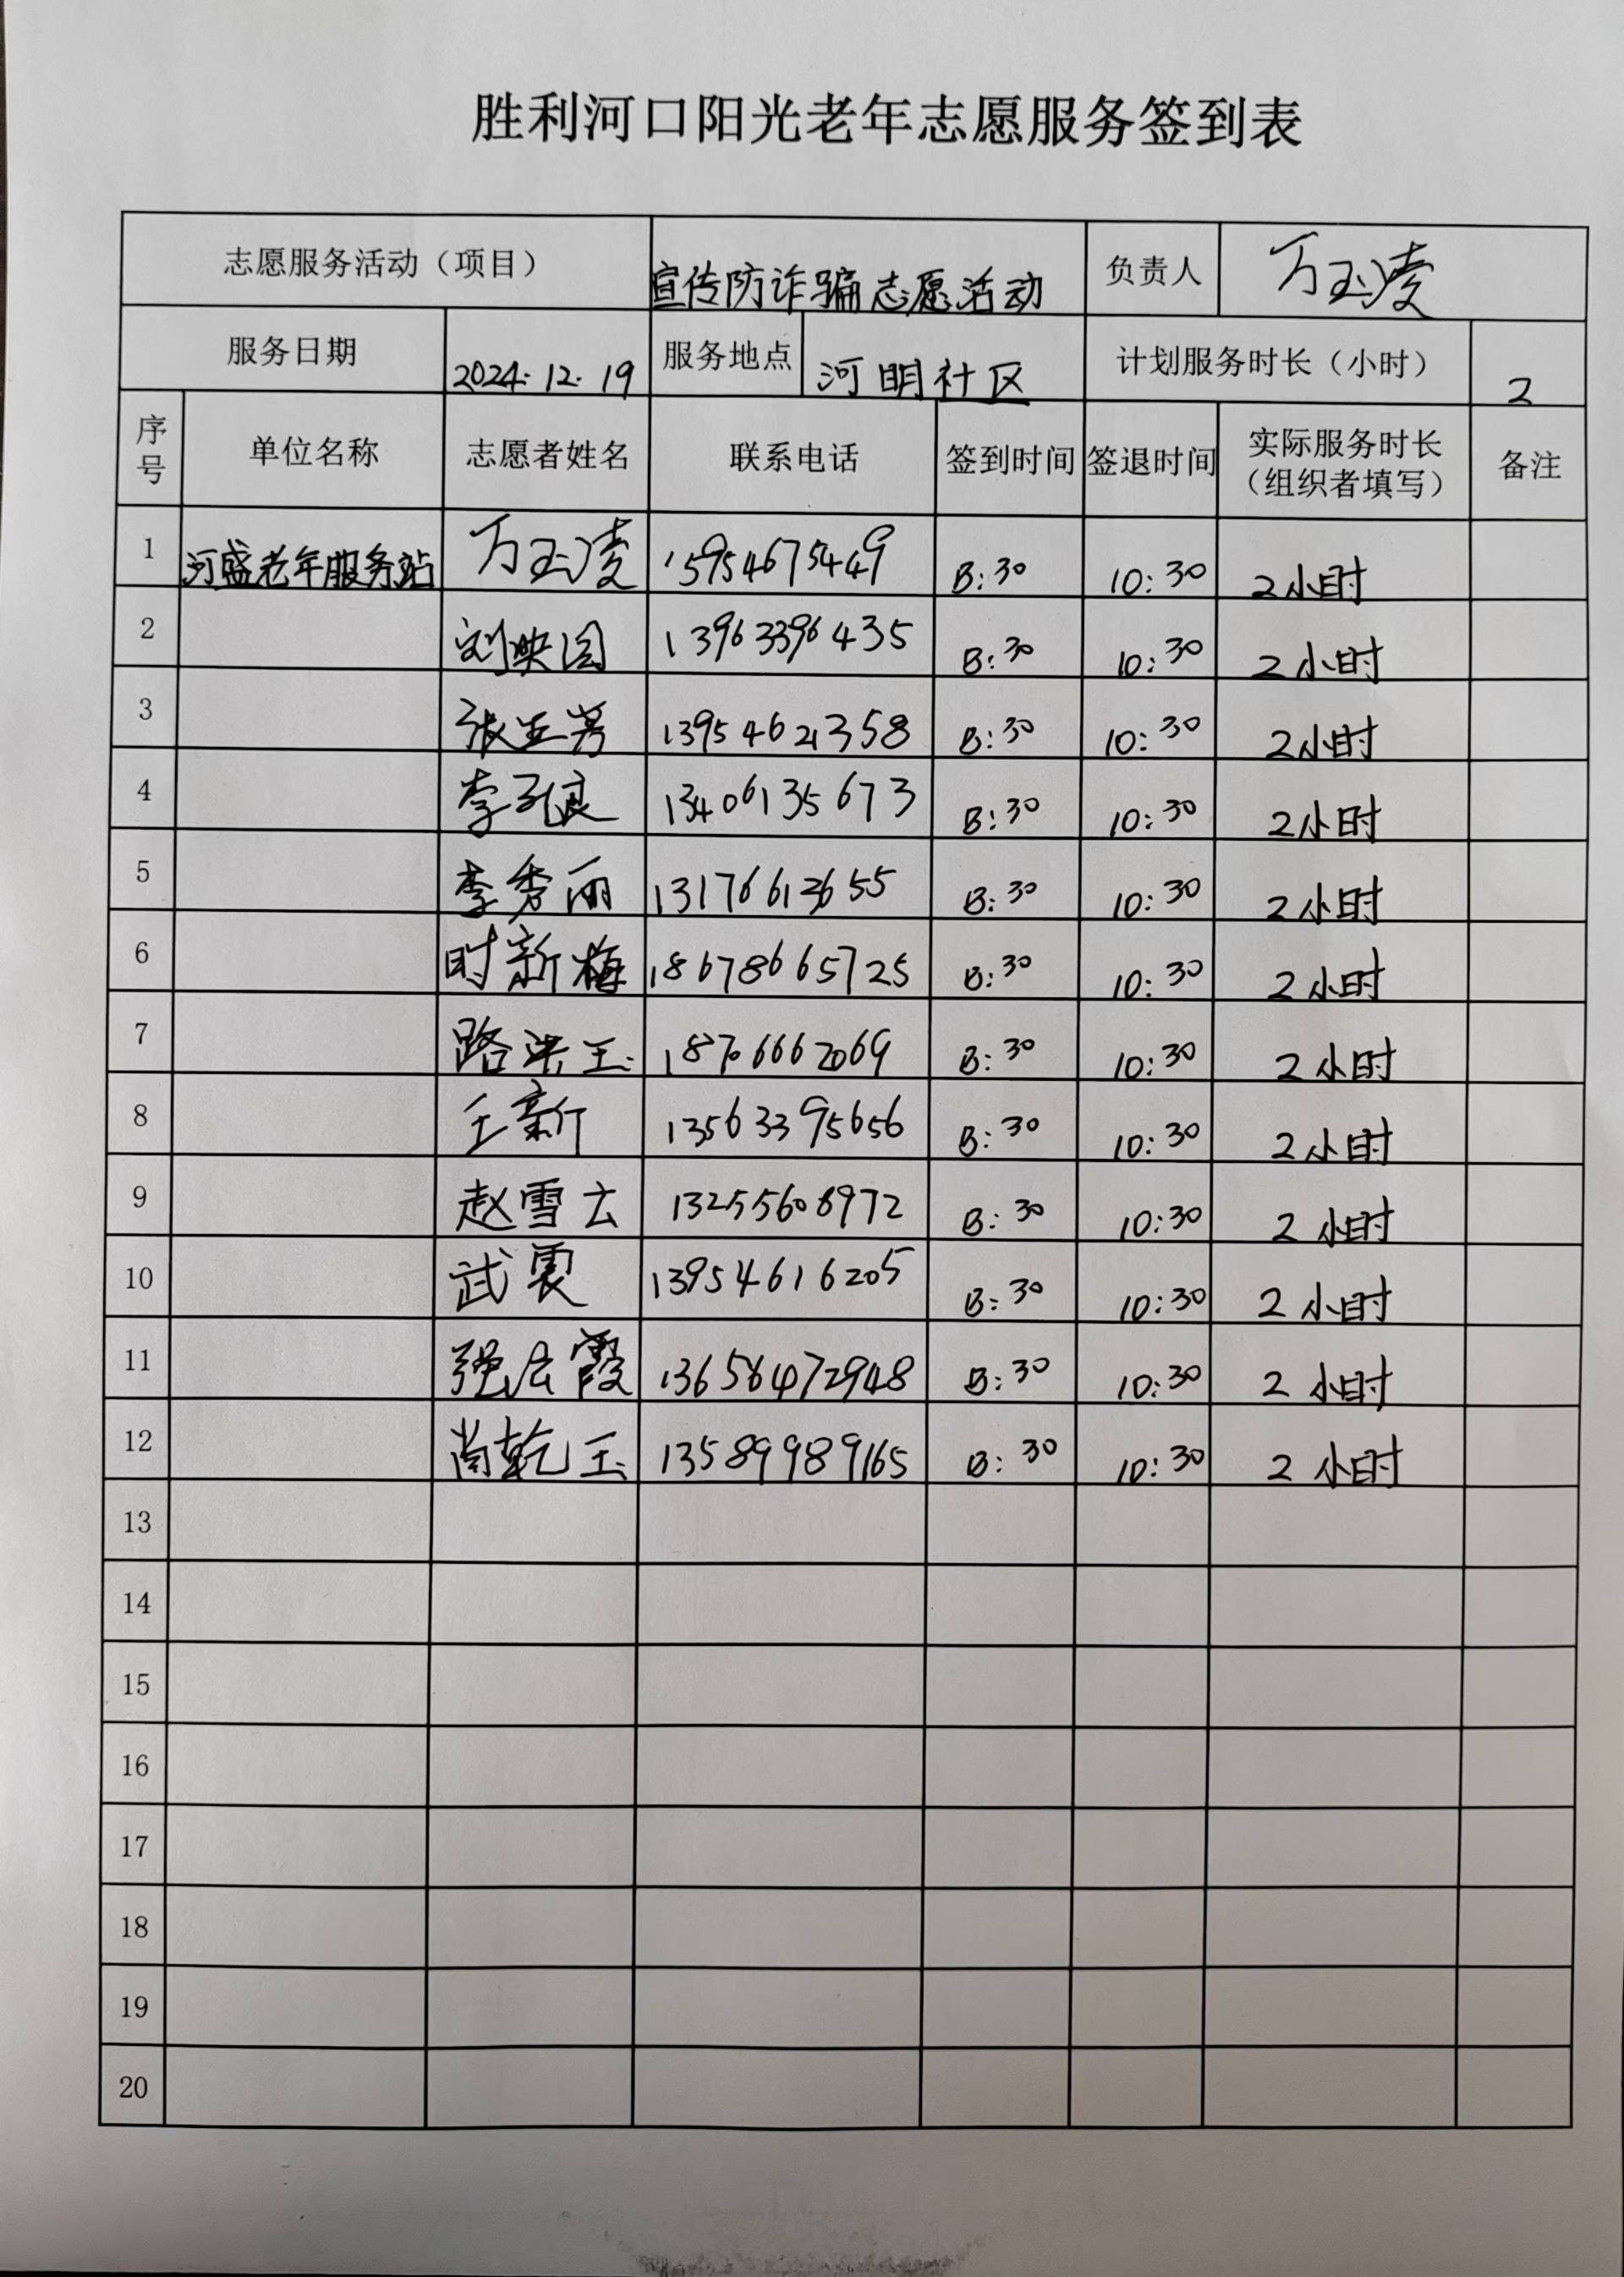 胜利河口阳光老年志愿服务签到表
志愿服务活动（项目） 宣传防诈骗志愿活动 负责人 万玉凌
服务日期 2024.12.19 服务地点 河明社区 计划服务时长（小时） 2
序号 单位名称 志愿者姓名 联系电话 签到时间 签退时间 实际服务时长（组织者填写） 备注
1 河盛老年服务站 万玉凌 15954675449 8:30 10:30 2小时
2 刘映国 13963396435 8:30 10:30 2小时
3 张玉芳 13954621358 8:30 10:30 2小时
4 李孔良 13406135673 8:30 10:30 2小时
5 李秀丽 13176612655 8:30 10:30 2小时
6 时新梅 18678665725 8:30 10:30 2小时
7 路洪玉 18706662069 8:30 10:30 2小时
8 王新 13563395656 8:30 10:30 2小时
9 赵雪云 13255608972 8:30 10:30 2小时
10 武震 13954616205 8:30 10:30 2小时
11 强云霞 13656472948 8:30 10:30 2小时
12 尚乾玉 13589989165 8:30 10:30 2小时
13
14
15
16
17
18
19
20